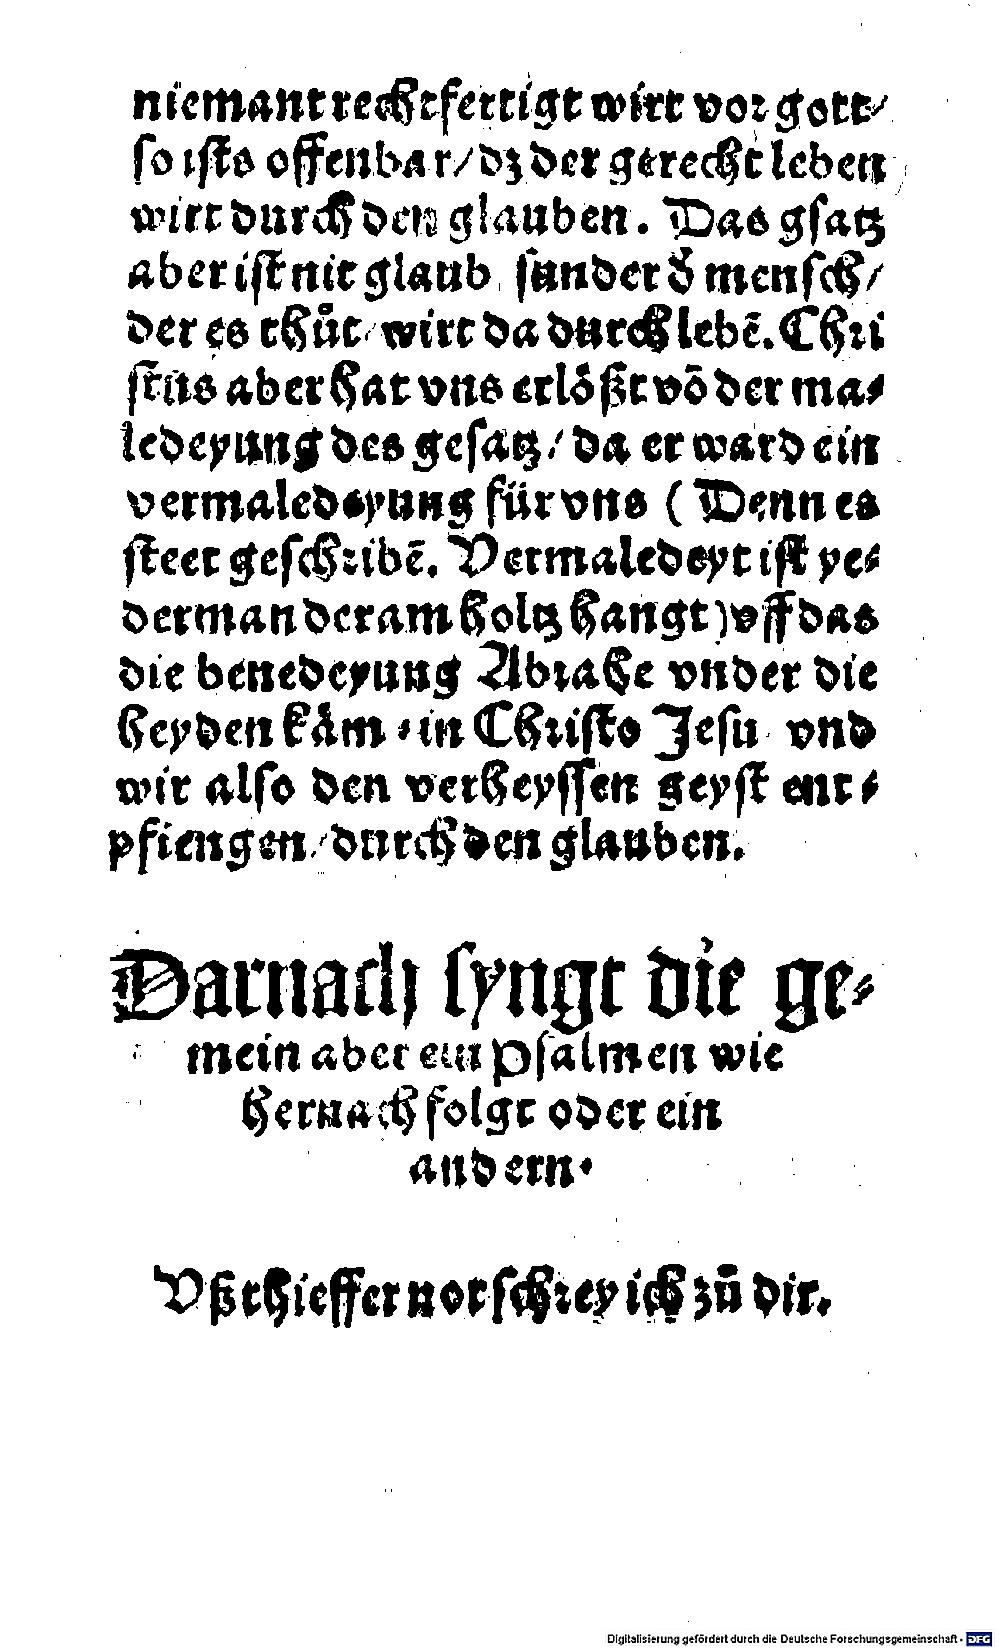 niemant rechtfertigt wirt vor gott/
so ists offenbar/ dz der gerecht leben
wirt durch den glauben. Das gsatz
aber ist nit glaub, sunder d̄ mensch/
der es thůt/ wirt da durch lebē. Chri
stus aber hat vns erlößt vō der ma⸗
ledeyung des gesatz/ da er ward ein
vermaledeyung für vns ( Denn es
steet geschribē. Vermaledeyt ist ye⸗
derman der am holtz hangt) vff das
die benedeyung Abrahe vnder die
heyden kåm ⸗ in Christo Jesu vnd
wir also den verheyssen geyst ent⸗
pfiengen/ durch den glauben.
Darnach syngt die ge⸗
mein aber ein Psalmen wie
hernach folgt oder ein
andern.
Vß thieffer not schrey ich zů dir.
Digitalisierung gefördert durch die Deutsche Forschungsgemeinschaft - DFG